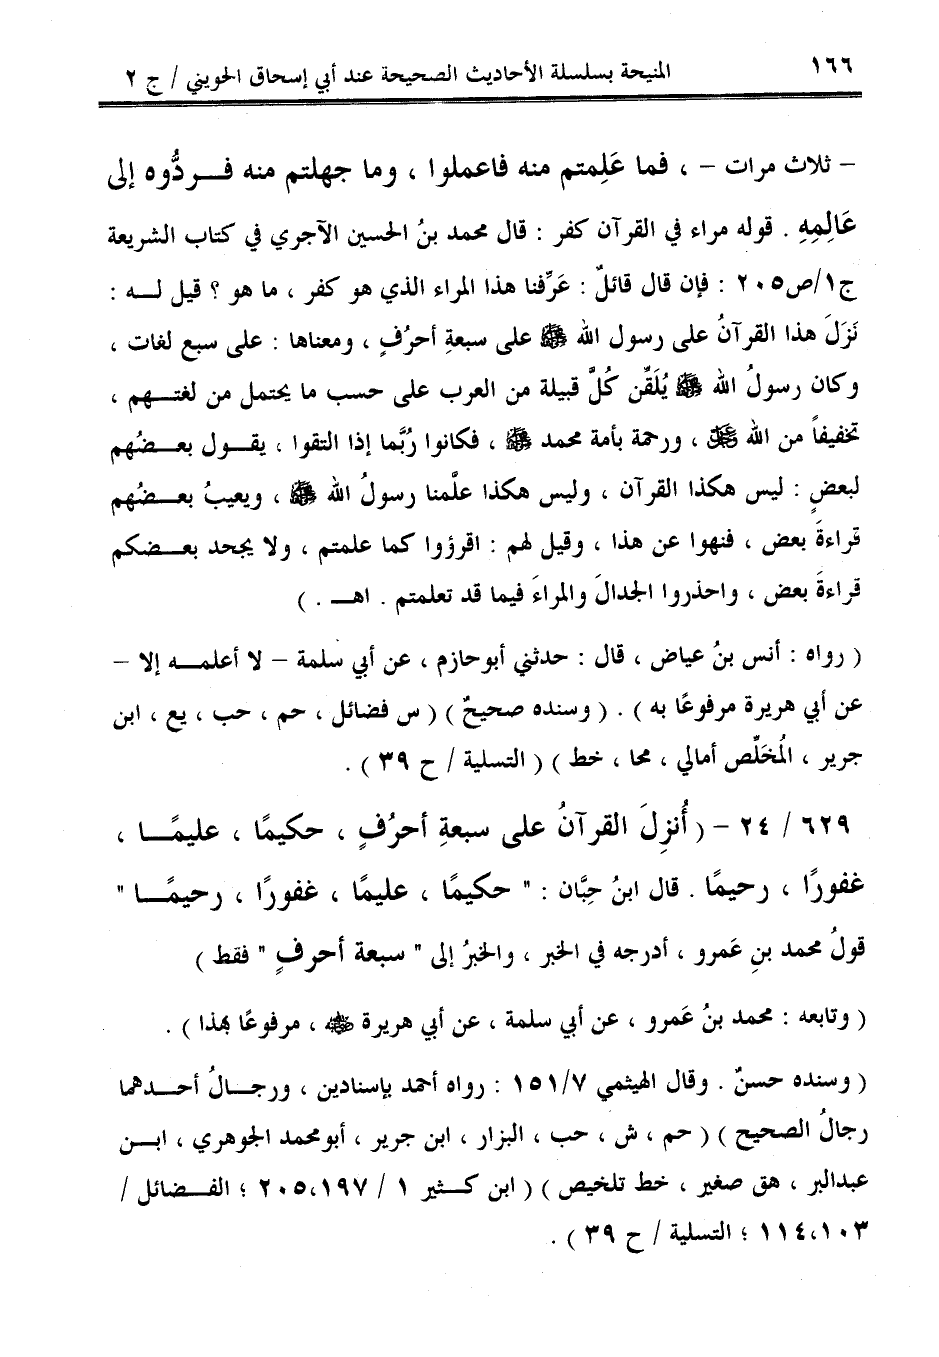 ١٦٦ المنيحة بسلسلة الأحاديث الصحيحة عند أبي إسحاق الحويني / ج ٢
– ثلاث مرات – ، فما عَلِمتم منه فاعملوا ، وما جهلتم منه فــردُّوه إلى
عَالِمِهِ . قوله مراء في القرآن كفر : قال محمد بنُ الحسين الآجري في كتاب الشريعة
ج١/ص٢٠٥ : فإن قال قائلٌ : عَرِّفنا هذا المراء الذي هو كفر ، ما هو ؟ قيل لــه :
نَزَلَ هذا القرآنُ على رسول الله ﷺ على سبعةِ أحرُفٍ ، ومعناها : على سبع لغات ،
وكان رسولُ الله ﷺ يُلَقِّن كُلَّ قبيلة من العرب على حسب ما يحتمل من لغتــهم ،
تخفيفاً من الله ﷻ ، ورحمة بأمة محمد ﷺ ، فكانوا رُبَّما إذا التقوا ، يقــول بعــضُهم
لبعضٍ : ليس هكذا القرآن ، وليس هكذا علَّمنا رسولُ الله ﷺ ، ويعيبُ بعــضُهم
قراءةَ بعض ، فنهوا عن هذا ، وقيل لهم : اقرؤوا كما علمتم ، ولا يجحد بعــضكم
قراءةَ بعض ، واحذروا الجدالَ والمراءَ فيما قد تعلمتم . اهــ . )
( رواه : أنس بنُ عياض ، قال : حدثني أبوحازم ، عن أبي سلمة – لا أعلمــه إلا –
عن أبي هريرة مرفوعًا به ) . ( وسنده صحيحٌ ) ( س فضائل ، حم ، حب ، يع ، ابن
جرير ، المُخَلِّص أمالي ، محا ، خط ) ( التسلية / ح ٣٩ ) .
٦٢٩ / ٢٤ – ( أُنزِلَ القرآنُ على سبعةِ أحرُفٍ ، حكيمًا ، عليمًــا ،
غفورًا ، رحيمًا . قال ابنُ حِبَّان : " حكيمًا ، عليمًا ، غفورًا ، رحيمًــا "
قولُ محمد بنِ عَمرو ، أدرجه في الخبر ، والخبرُ إلى " سبعة أحرفٍ " فقط )
( وتابعه : محمد بنُ عَمرو ، عن أبي سلمة ، عن أبي هريرة رضي الله عنه ، مرفوعًا بهذا ) .
( وسنده حسنٌ . وقال الهيثمي ١٥١/٧ : رواه أحمد بإسنادين ، ورجــالُ أحــدهما
رجالُ الصحيح ) ( حم ، ش ، حب ، البزار ، ابن جرير ، أبومحمد الجوهري ، ابــن
عبدالبر ، هق صغير ، خط تلخيص ) ( ابن كــثير ١ / ٢٠٥،١٩٧ ؛ الفــضائل /
١١٤،١٠٣ ؛ التسلية / ح ٣٩ ) .